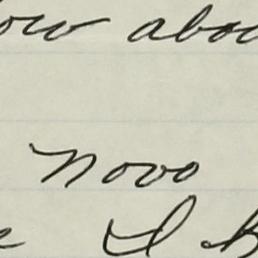 ow abou
Novo
I B